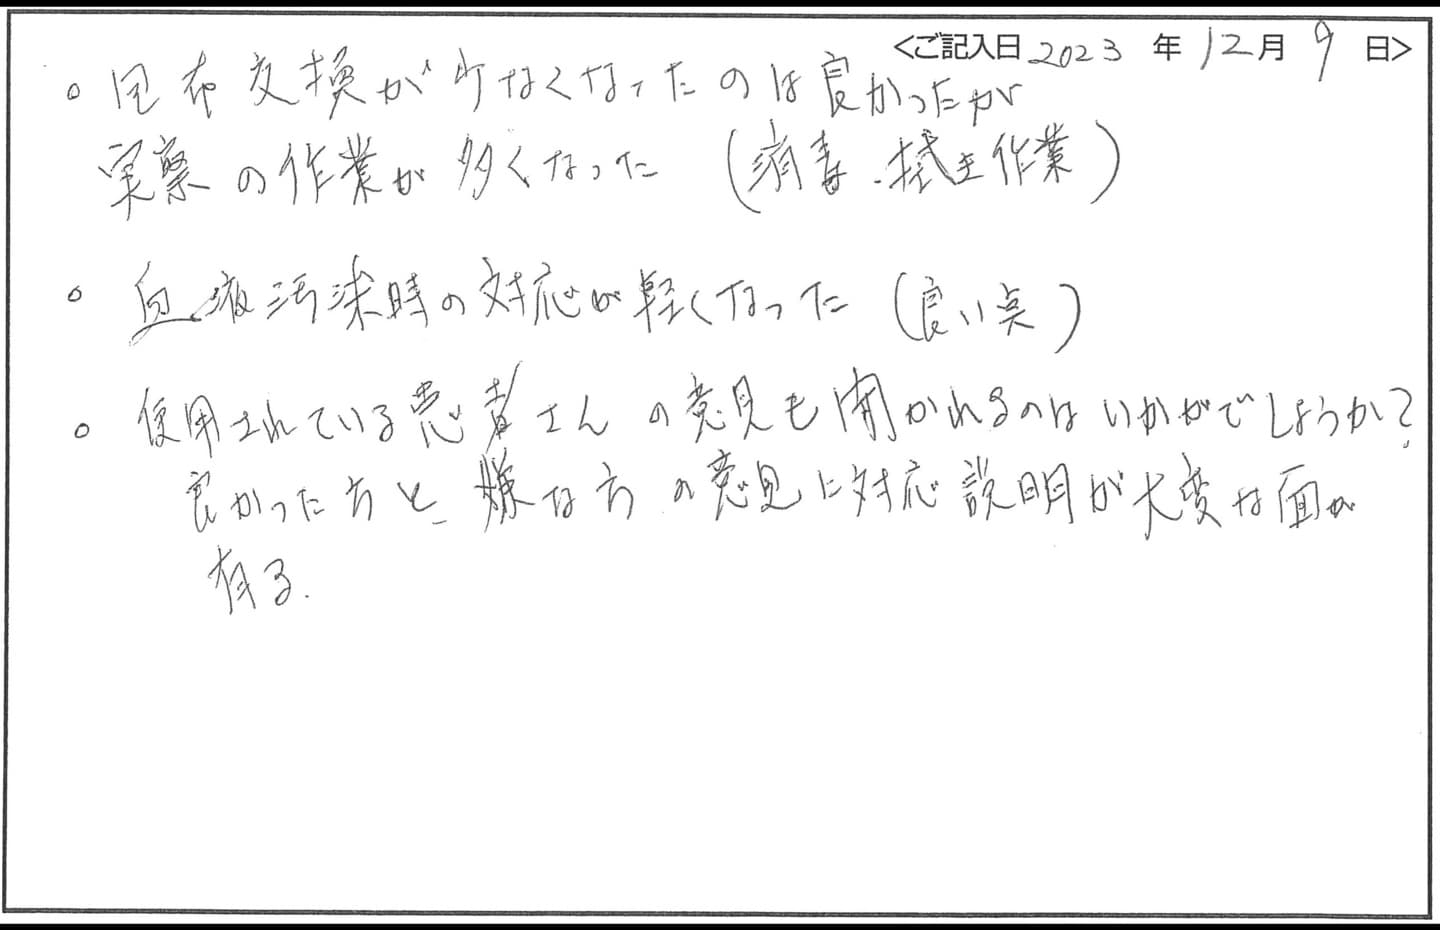 <ご記入日 2023 年 12月 9 日>
。 布交換が少なくなったのは良かったが
実際の作業が多くなった (消毒・拭き作業)
。 血液汚染時の対応が軽くなった (良い点)
。 使用されている患者さんの意見も聞かれるのはいかがでしょうか?
良かった方と嫌な方の意見に対応説明が大変な面が
有る.